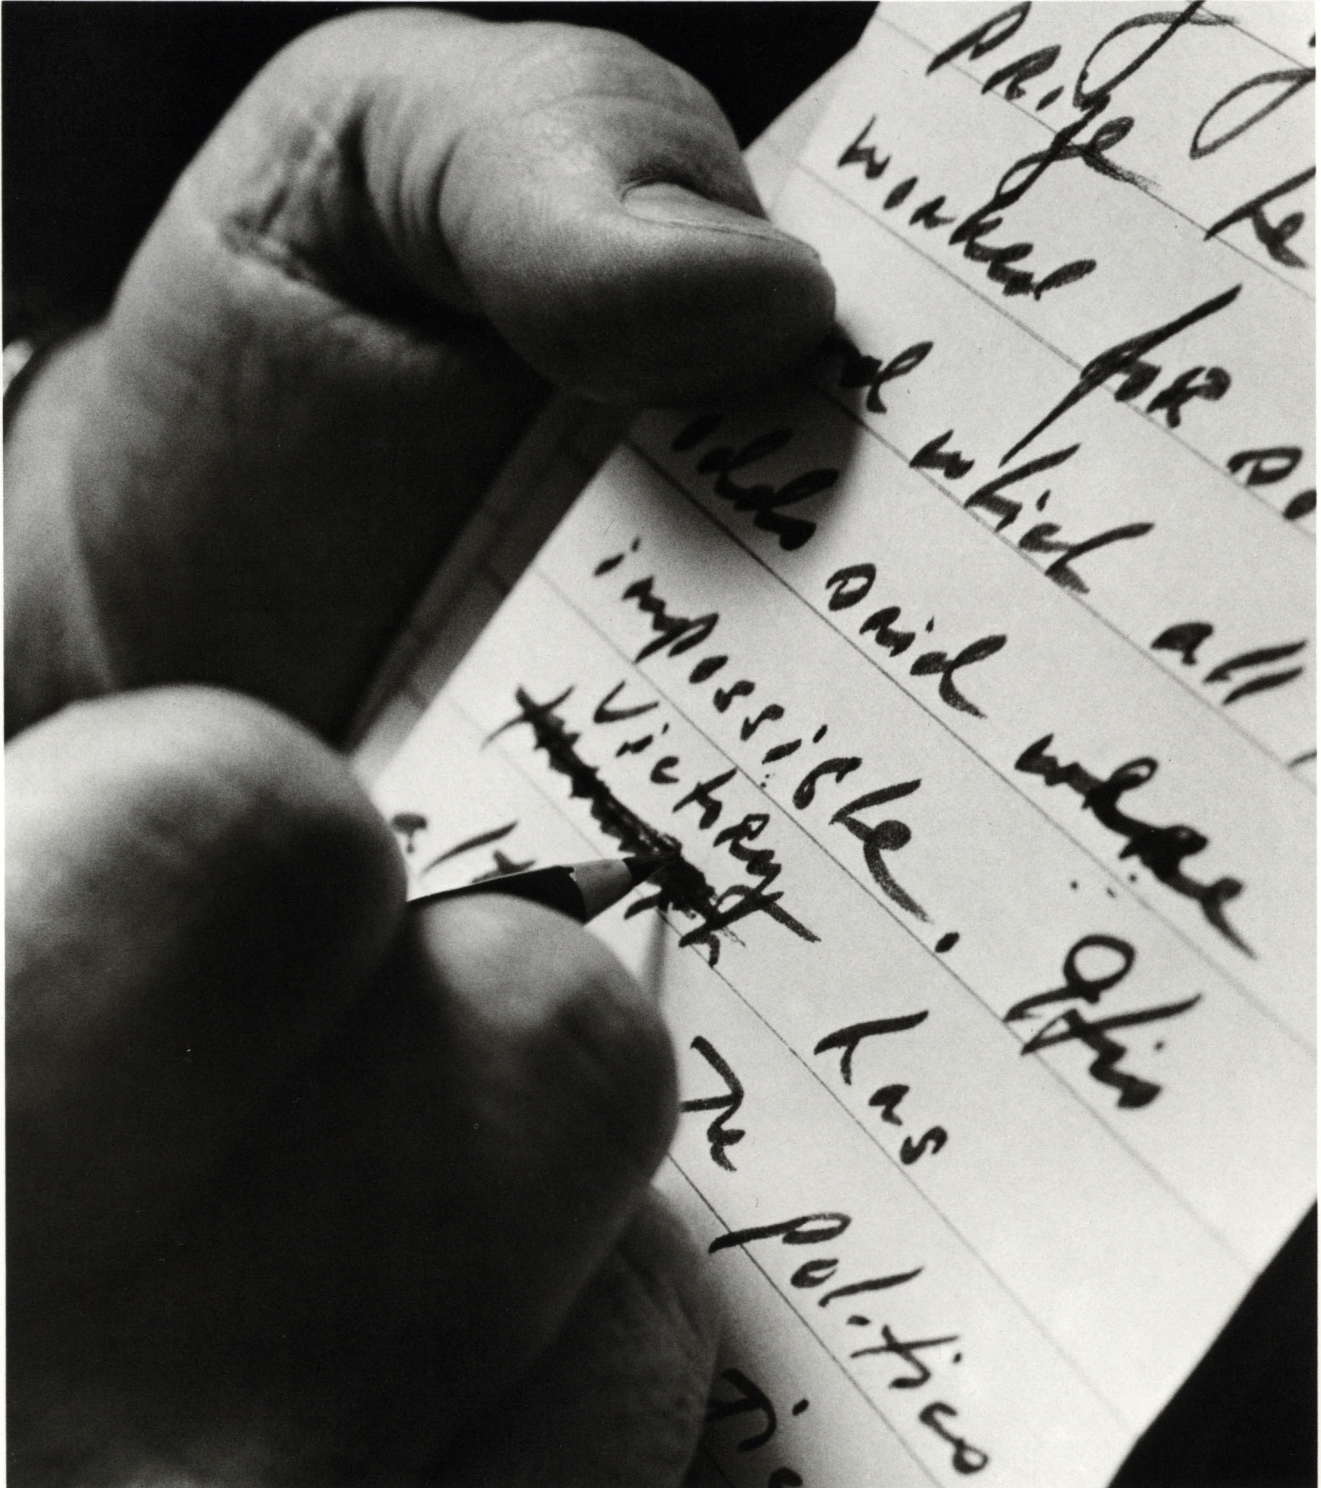 prize he
worked for
which all
odds said were
impossible. His
Victory has
The politics